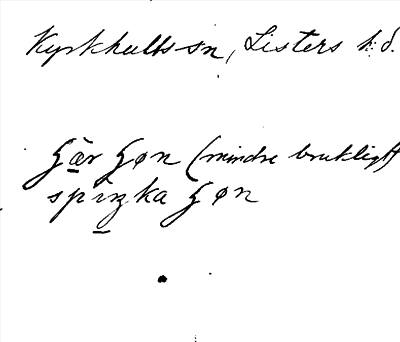 Kyrkhults sn, Listers h:d.
gær gøn (mindre brukligt)
spinka gøn